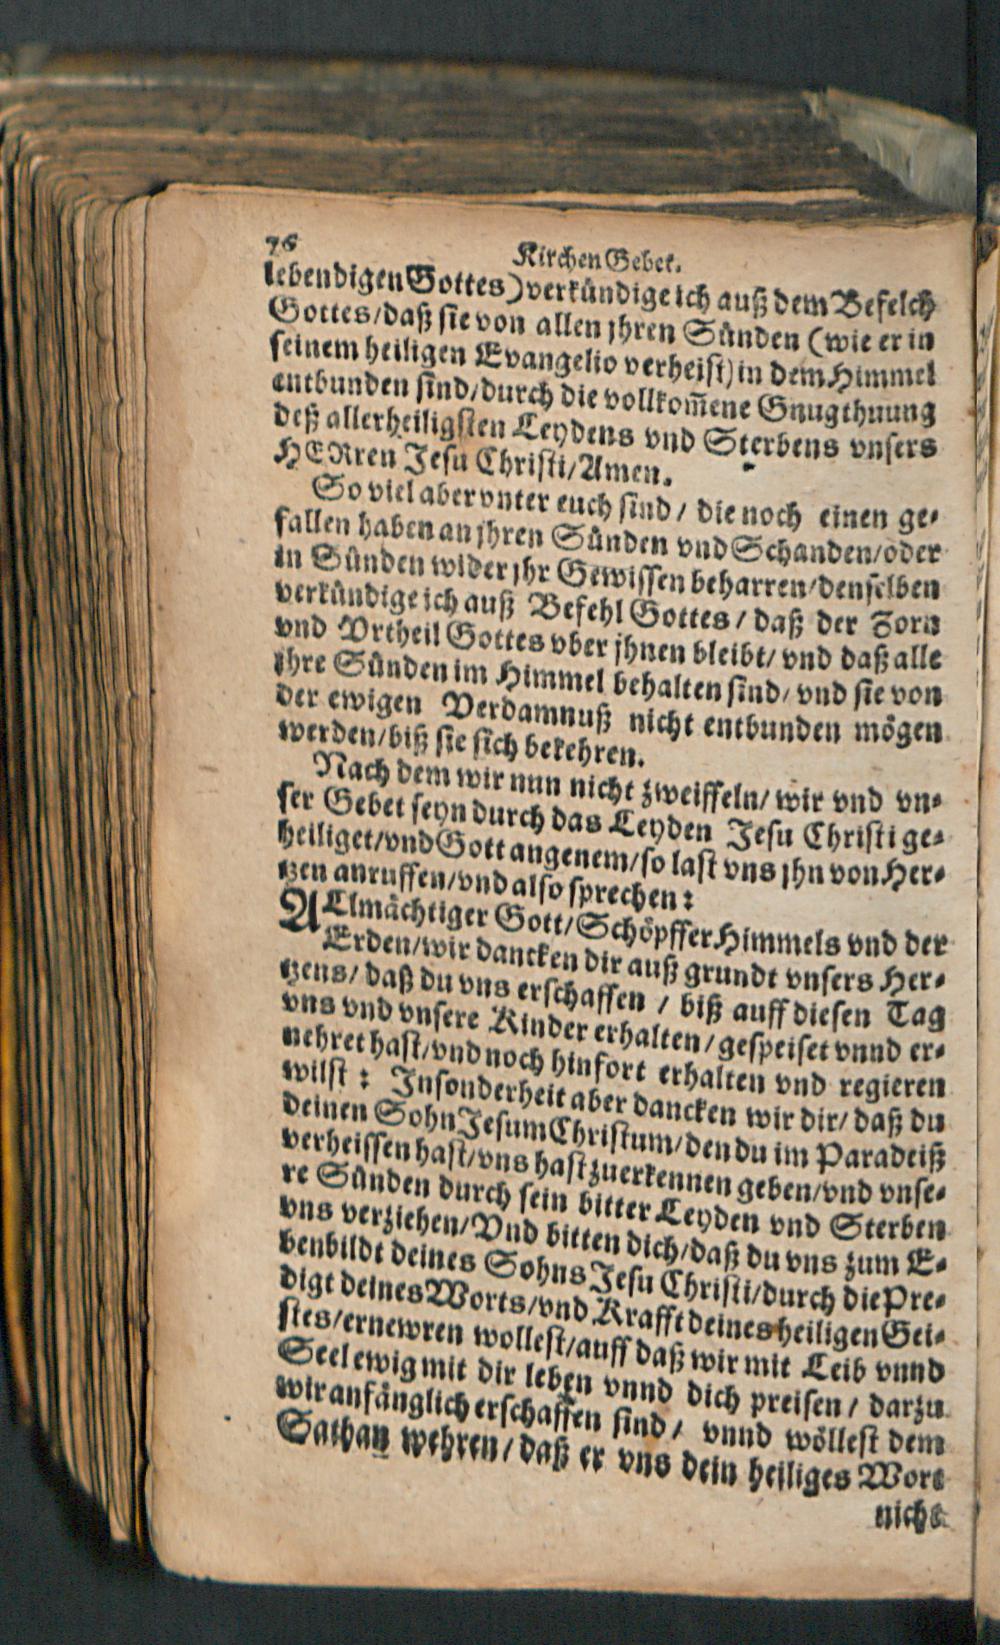 76
Kirchen Gebet.
lebendigen Gottes) verkündige ich auß dem Befelch
Gottes/daß sie von allen jhren Sünden (wie er in
seinem heiligen Evangelio verheist) in dem Himmel
entbunden sind/durch die vollkom̃ene Gnugthuung
deß allerheiligsten Leydens vnd Sterbens vnsers
HERren Jesu Christi/Amen.
So viel aber vnter euch sind / die noch einen ge⸗
fallen haben an jhren Sünden vnd Schanden/oder
in Sünden wider jhr Gewissen beharren/denselben
verkündige ich auß Befehl Gottes / daß der Zorn
vnd Vrtheil Gottes vber jhnen bleibt/ vnd daß alle
jhre Sünden im Himmel behalten sind/ vnd sie von
der ewigen Verdamnuß nicht entbunden mögen
werden/biß sie sich bekehren.
Nach dem wir nun nicht zweiffeln/ wir vnd vn⸗
ser Gebet seyn durch das Leyden Jesu Christi ge⸗
heiliget/vnd Gott angenem/so last vns jhn von Her⸗
tzen anruffen/vnd also sprechen:
ALlmächtiger Gott/Schöpffer Himmels vnd der
Erden/wir dancken dir auß grundt vnsers Her⸗
tzens/ daß du vns erschaffen / biß auff diesen Tag
vns vnd vnsere Kinder erhalten/gespeiset vnnd er⸗
nehret hast/vnd noch hinfort erhalten vnd regieren
wilst : Insonderheit aber dancken wir dir/ daß du
deinen Sohn Jesum Christum/den du im Paradeiß
verheissen hast/vns hast zuerkennen geben/vnd vnse⸗
re Sünden durch sein bitter Leyden vnd Sterben
vns verziehen/Vnd bitten dich/daß du vns zum E⸗
benbildt deines Sohns Jesu Christi/durch die Pre⸗
digt deines Worts/vnd Krafft deines heiligen Gei⸗
stes/ernewren wollest/auff daß wir mit Leib vnnd
Seel ewig mit dir leben vnnd dich preisen / darzu
wir anfänglich erschaffen sind / vnnd wöllest dem
Sathan wehren/daß er vns dein heiliges Wort
nicht